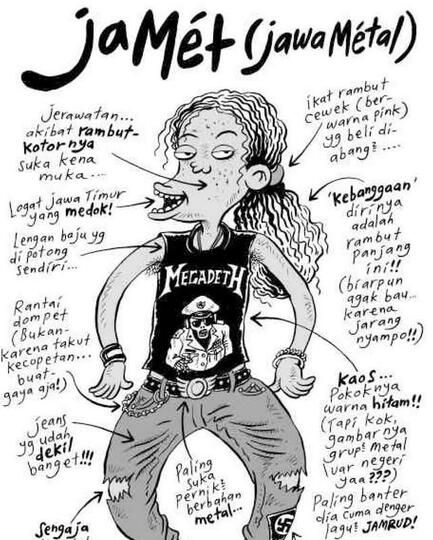 jaMét (jawaMétal)
jerawatan...
akibat rambut-
kotornya
suka kena
muka....
ikat rambut
cewek (ber-
warna pink)
yg beli di-
abang²....
Logat jawa Timur
yang medok!
'kebanggaan'
dirinya
adalah
rambut
panjang
ini!!
(biarpun
agak bau...
karena
jarang
nyampo!!)
Lengan baju yg
di potong
sendiri...
MEGADETH
Rantai
dompet
(Bukan-
karena takut
kecopetan...
buat-
gaya aja!)
kaos...
Pokoknya
warna hitam!!
(Tapi kok,
gambarnya
grup² metal
luar negeri
yaa???)
Paling banter
dia cuma denger
lagu² JAMRUD!
jeans
yg udah
dekil
banget!!!
Paling
suka
pernik²
berbahan
metal...
Sengaja